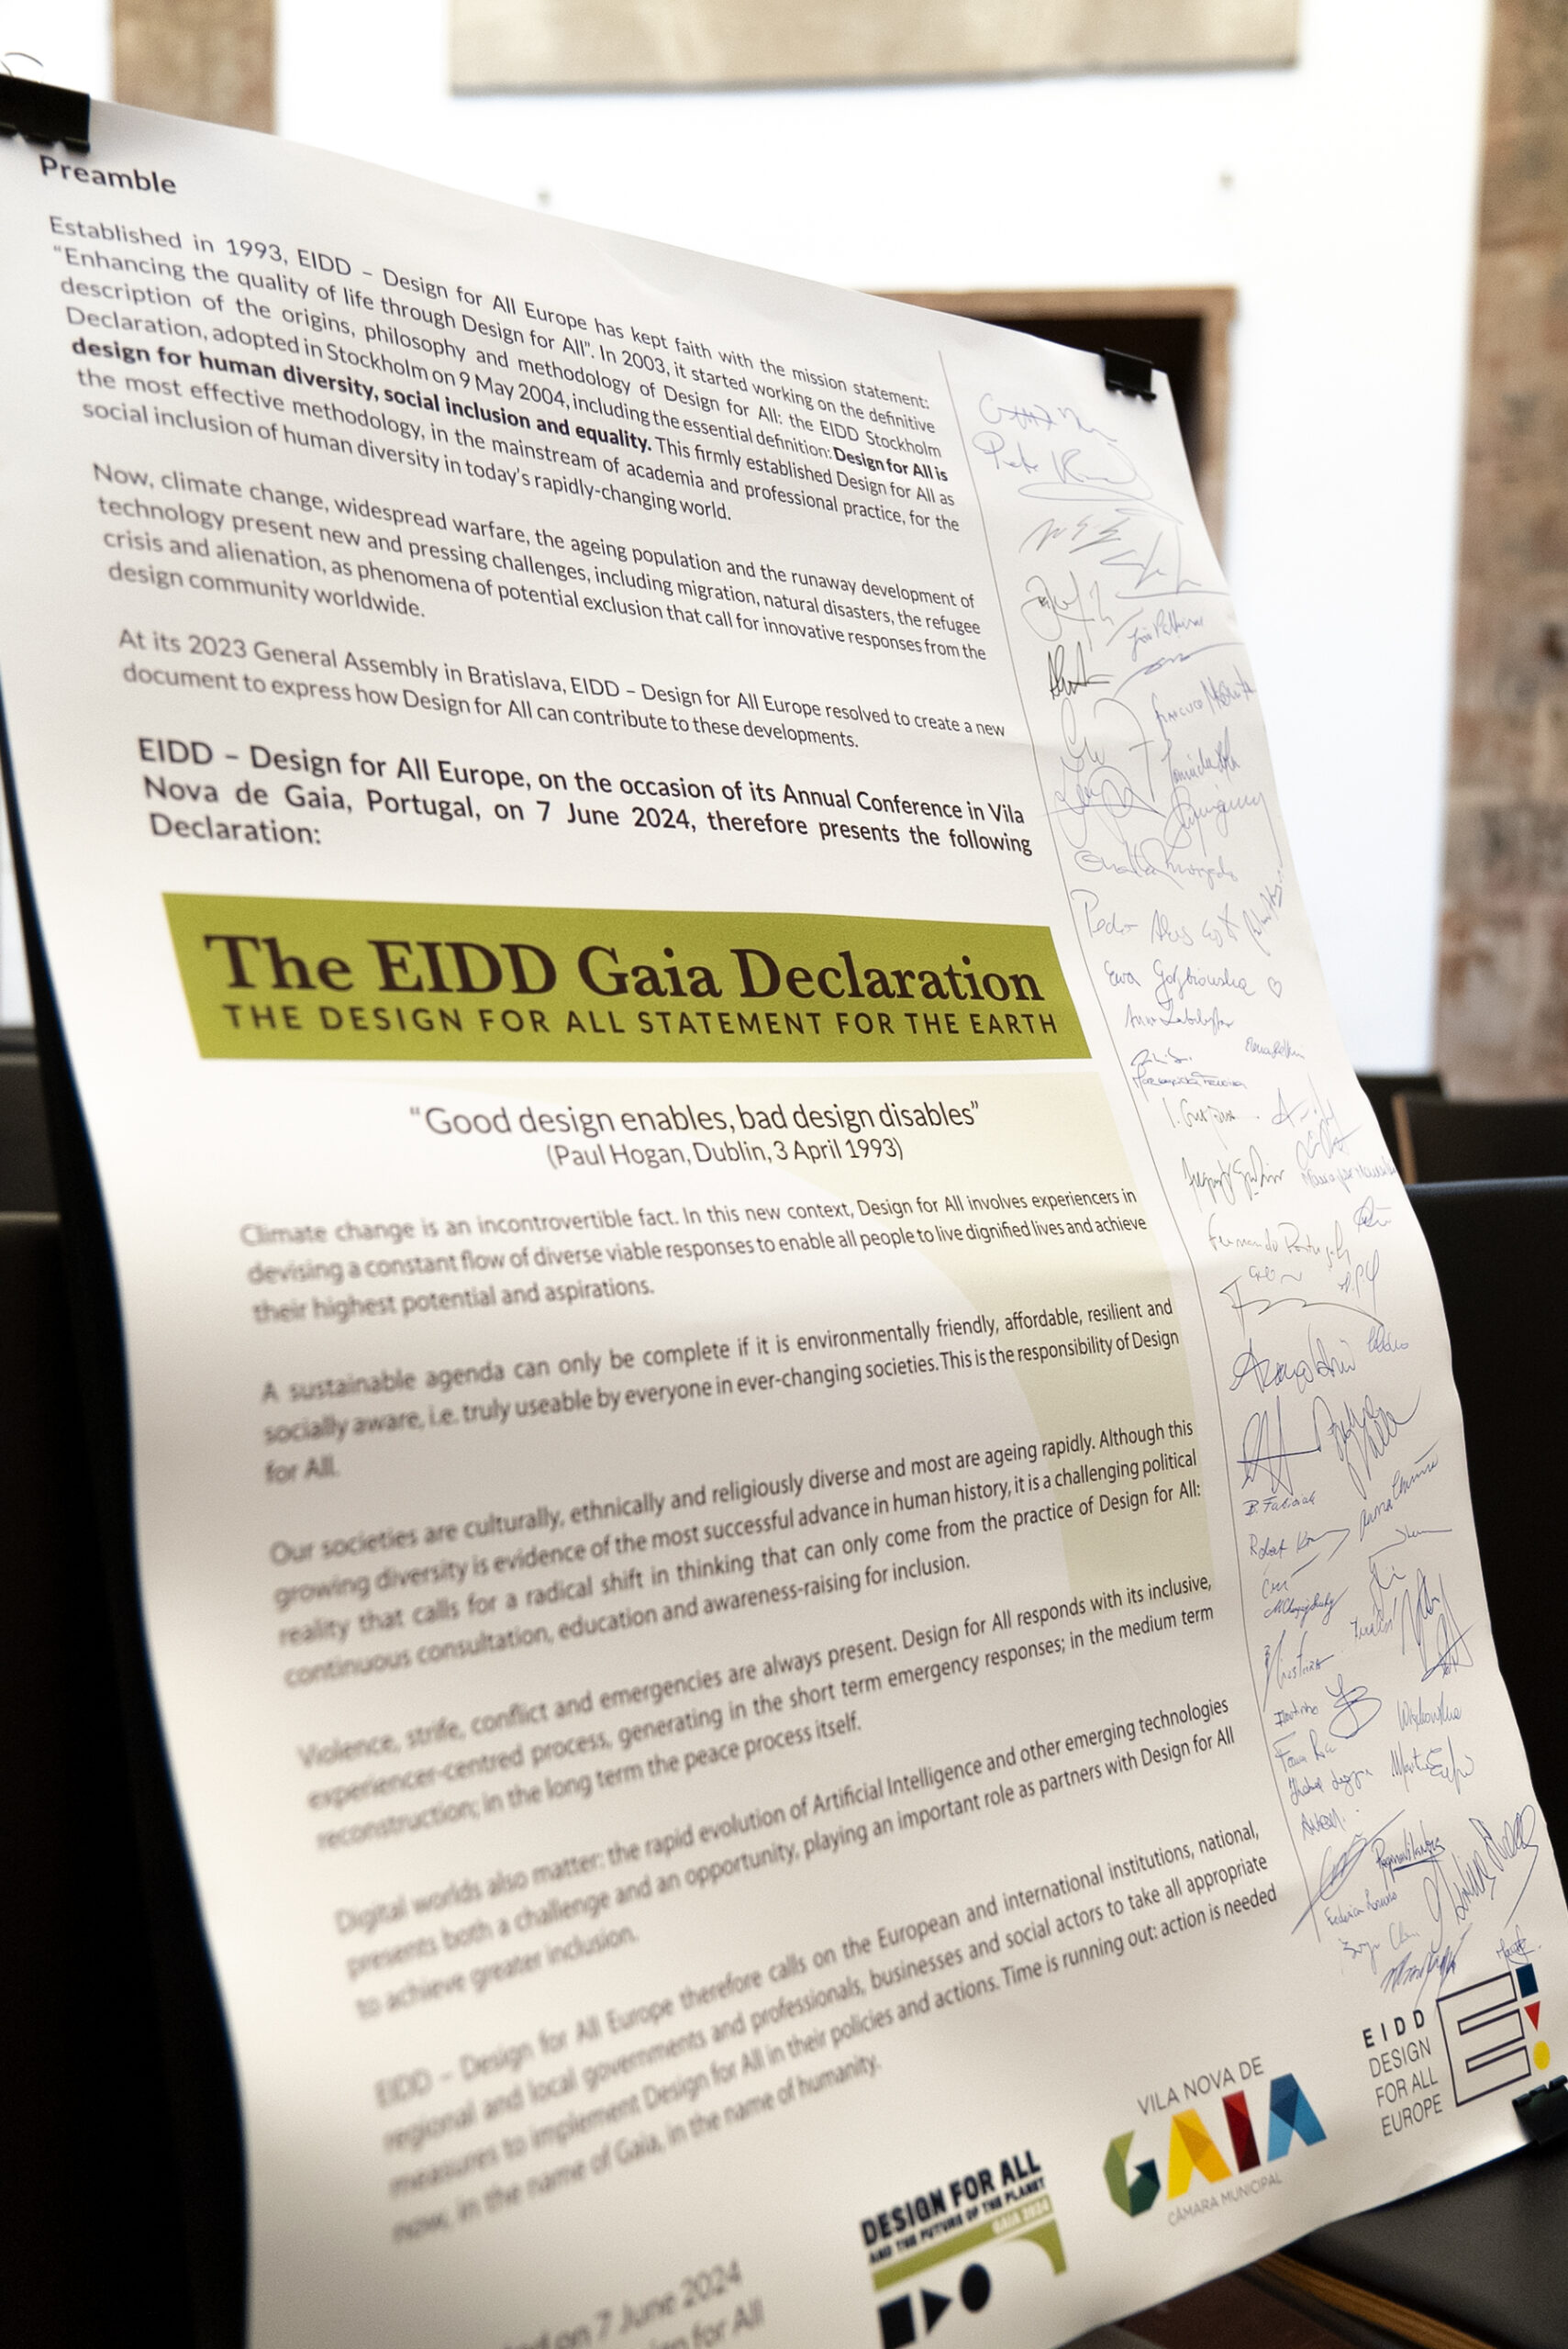 Preamble
Established in 1993, EIDD – Design for All Europe has kept faith with the mission statement:
“Enhancing the quality of life through Design for All”. In 2003, it started working on the definitive
description of the origins, philosophy and methodology of Design for All: the EIDD Stockholm
Declaration, adopted in Stockholm on 9 May 2004, including the essential definition: Design for All is
design for human diversity, social inclusion and equality. This firmly established Design for All as
the most effective methodology, in the mainstream of academia and professional practice, for the
social inclusion of human diversity in today’s rapidly-changing world.
Now, climate change, widespread warfare, the ageing population and the runaway development of
technology present new and pressing challenges, including migration, natural disasters, the refugee
crisis and alienation, as phenomena of potential exclusion that call for innovative responses from the
design community worldwide.
At its 2023 General Assembly in Bratislava, EIDD – Design for All Europe resolved to create a new
document to express how Design for All can contribute to these developments.
EIDD – Design for All Europe, on the occasion of its Annual Conference in Vila
Nova de Gaia, Portugal, on 7 June 2024, therefore presents the following
Declaration:
The EIDD Gaia Declaration
THE DESIGN FOR ALL STATEMENT FOR THE EARTH
“Good design enables, bad design disables”
(Paul Hogan, Dublin, 3 April 1993)
Climate change is an incontrovertible fact. In this new context, Design for All involves experiencers in
devising a constant flow of diverse viable responses to enable all people to live dignified lives and achieve
their highest potential and aspirations.
A sustainable agenda can only be complete if it is environmentally friendly, affordable, resilient and
socially aware, i.e. truly useable by everyone in ever-changing societies. This is the responsibility of Design
for All.
Our societies are culturally, ethnically and religiously diverse and most are ageing rapidly. Although this
growing diversity is evidence of the most successful advance in human history, it is a challenging political
reality that calls for a radical shift in thinking that can only come from the practice of Design for All:
continuous consultation, education and awareness-raising for inclusion.
Violence, strife, conflict and emergencies are always present. Design for All responds with its inclusive,
experiencer-centred process, generating in the short term emergency responses; in the medium term
reconstruction; in the long term the peace process itself.
Digital worlds also matter: the rapid evolution of Artificial Intelligence and other emerging technologies
presents both a challenge and an opportunity, playing an important role as partners with Design for All
to achieve greater inclusion.
EIDD – Design for All Europe therefore calls on the European and international institutions, national,
regional and local governments and professionals, businesses and social actors to take all appropriate
measures to implement Design for All in their policies and actions. Time is running out: action is needed
now, in the name of Gaia, in the name of humanity.
on 7 June 2024
for All
DESIGN FOR ALL
AND THE FUTURE OF THE PLANET
GAIA 2024
VILA NOVA DE
GAIA
CÂMARA MUNICIPAL
EIDD
DESIGN
FOR ALL
EUROPE